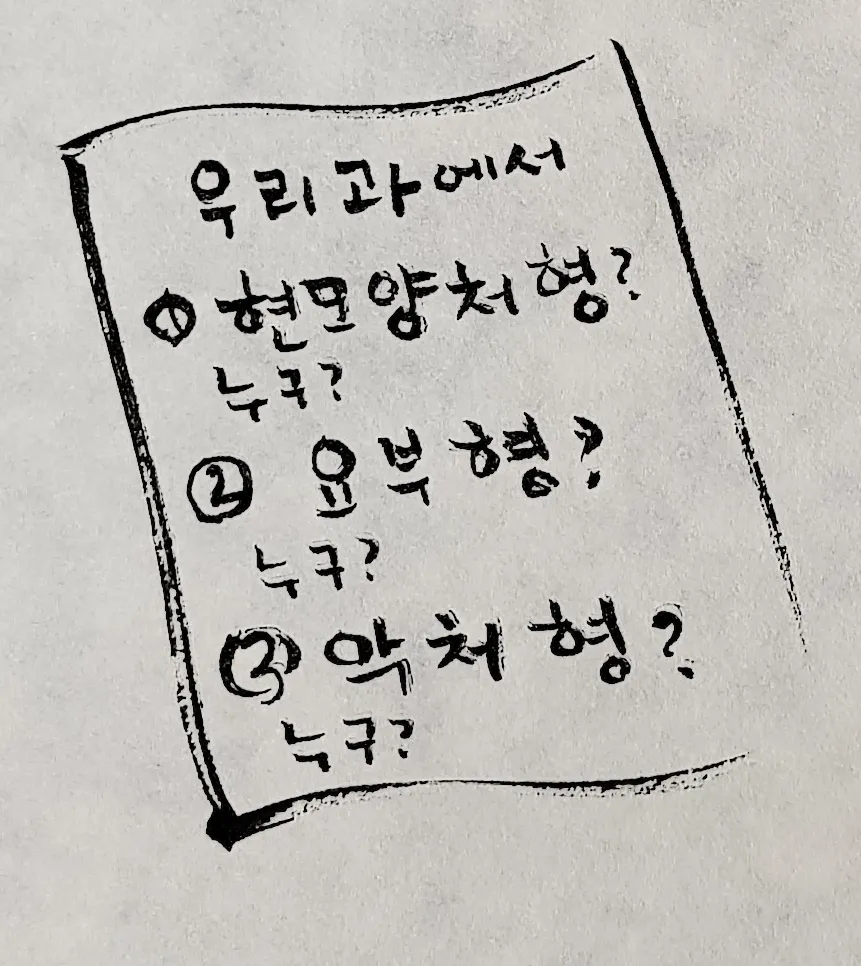 우리과에서
① 현모양처형?
누구?
② 요부형?
누구?
③ 악처형?
누구?